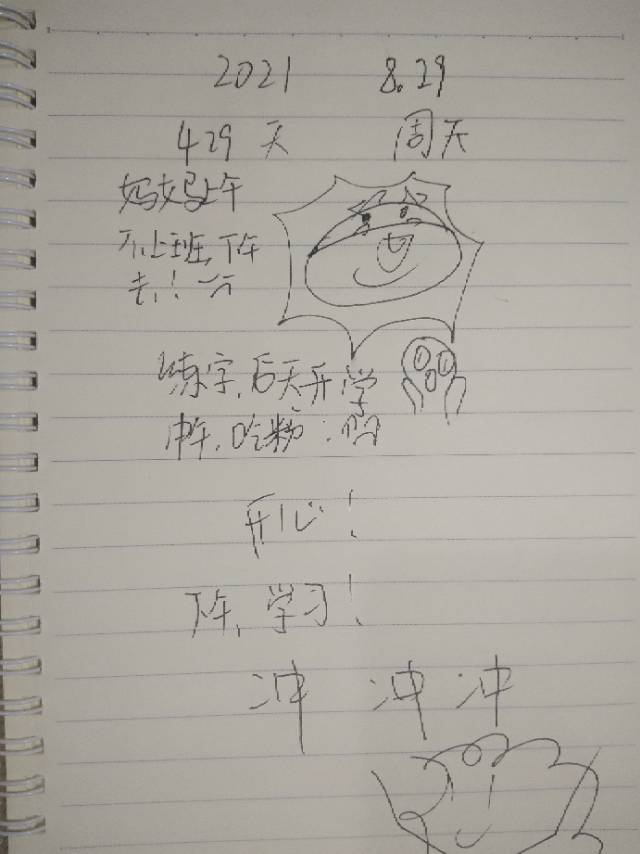 2021 8.29
429天 周天
妈妈上午
不上班,下午
去
练字,后天开学
中午,吃粉:
开心!
下午,学习!
冲 冲 冲